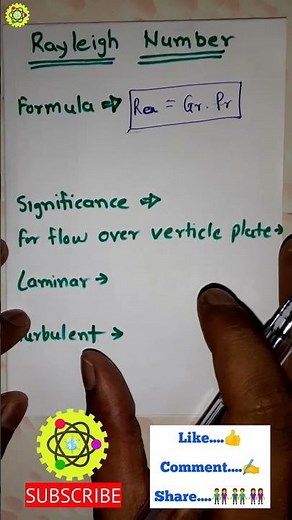 Rayleigh Number
Formula ⇒ Ra = Gr. Pr
Significance ⇒
for flow over verticle plate →
Laminar →
Turbulent →
SUBSCRIBE
Like....👍
Comment....✍
Share....👫👫👭